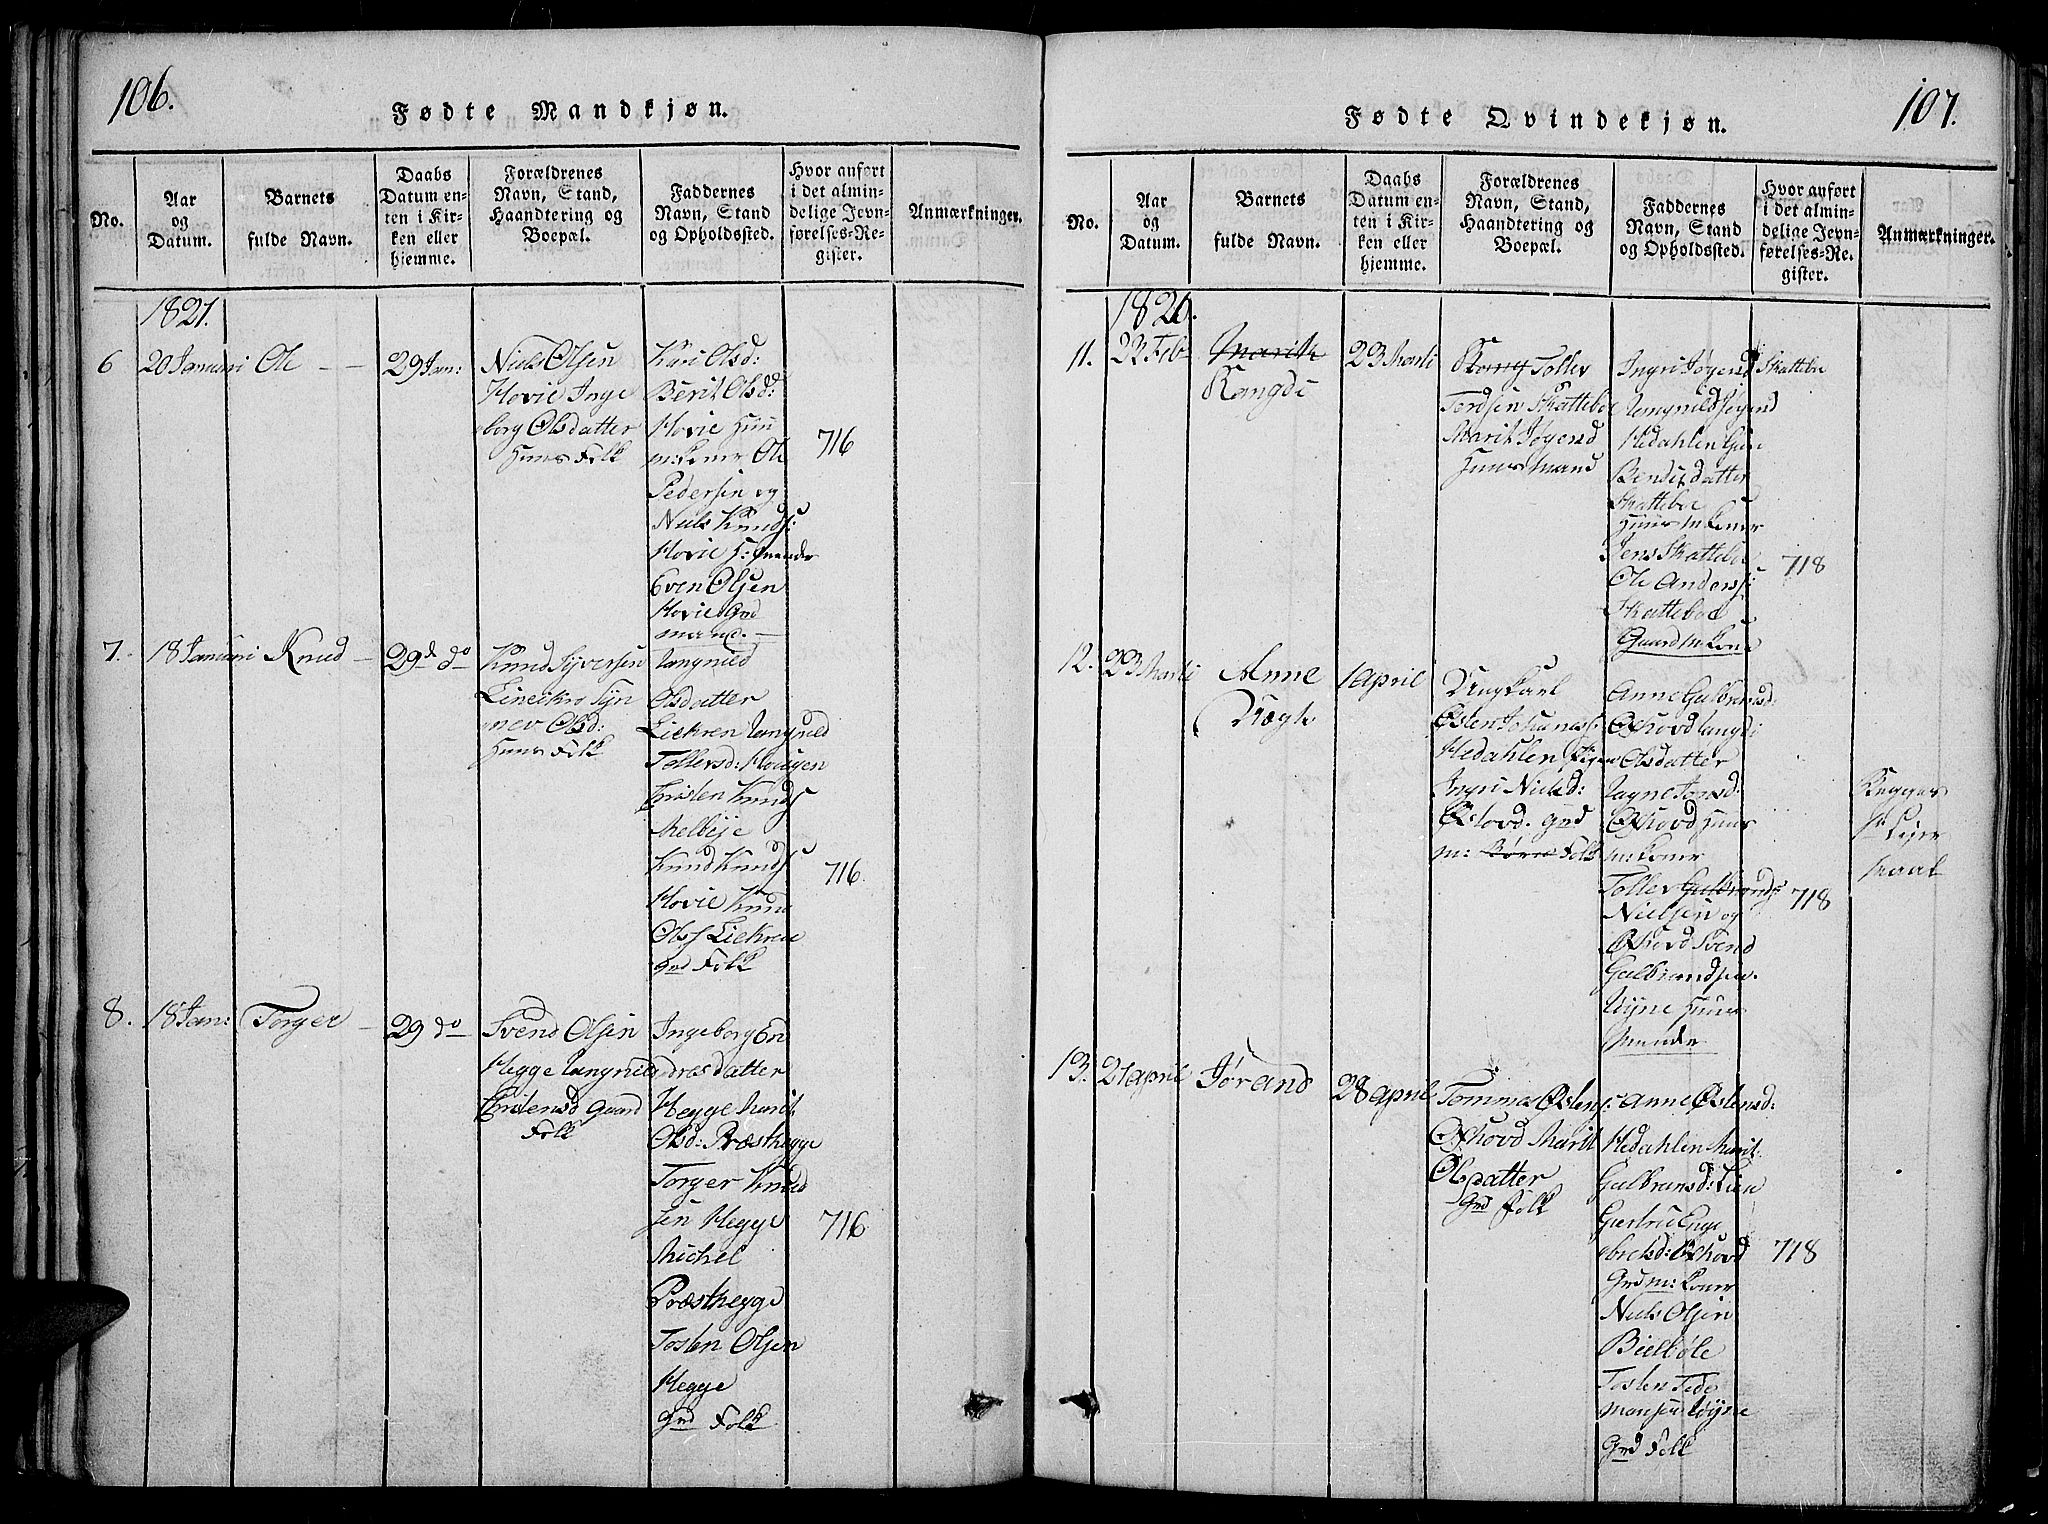 106.
Fødte Mandkjøn.
No.
Aar
og
Datum.
Barnets
fulde Navn.
Daabs
Datum en-
ten i Kir-
ken eller
hjemme.
Forældrenes
Navn, Stand,
Haandtering og
Boepæl.
Faddernes
Navn, Stand
og Opholdssted.
Hvor anført
i det almin-
delige Jevn-
førelses-Re-
gister.
Anmærkninger.
1821.
6
20 Januari
Ole - -
29 Jan:
Niels Olsen
Hovie Inge
borg Olsdatter
Huus Folk
Kari Olsd:
Berit Olsd:
Hovie Huu
m:koner Ole
Pedersen og
Niels Knuds:
Hovie H:mænder
Even Olsen
Hovie Grd
mand. -
716
7.
18 Januari
Knud -
29d do
Knud Syversen
Syn
nev Olsd:
Huus Folk
Rangnild
Olsdatter
Liekren Rangnild
Tollersd: Hougen
Cristen Knuds
Melbye
Knud Knuds
Hovie Knud
Ols Liekren
Grd Folk
716
8.
18 Jan:
Torger -
29 do
Svend Olsen
Hegge Rangnild
Cristensd Gaard
Folk
Ingeborg En
dresdatter
Hegge Marit
Olsd: Præsthegge
Torger Knud
sen Hegge
Michel
Præsthegge
Tosten Olsen
Hegge
Grd Folk
716
107.
Fødte Qvindekjøn.
No.
Aar
og
Datum.
Barnets
fulde Navn.
Daabs
Datum en-
ten i Kir-
ken eller
hjemme.
Forældrenes
Navn, Stand,
Haandtering og
Boepæl.
Faddernes
Navn, Stand
og Opholdssted.
Hvor anført
i det almin-
delige Jevn-
førelses-Re-
gister.
Anmærkninger.
1820.
11.
22 Feb
Marit
Rangdi
23 Marti
Tollev
Tordsen Skatteboe
Marit Jøgensd
Huusmand
Ingri Jøgensd Skattebo
Rangnild Jøgensd
Hedahlen Guri
Bendixdatter
Skatteboe
Huus m koner
Jens Skatteboe
Ole Anders:
Skatteboe
Gaardm Kone
718
12.
23 Marti
Anne
1 April
Ungkarl
Østen Johannes:
Hedahlen Pigen
Ingri Nielsd:
Øxhovd. Grd
m: Børn Folk
Anne Gulbransd:
Øxhovd Rangdi
Olsdatter
Jonsd:
Øxhovd Huus
m:koner
Tollev Gulbrands
Nielsen og
Øxhovd Svend
Gulbrandsen
Røyne Huus
Mænder
718
Begges
1ste Leier
maal
13.
21 April
Jørand
28 April
Tommas Østens:
Øxhovd Marit
Olsdatter
Grd Folk
Anne Østensd:
Hedahlen Marit
Gulbransd: Lien
Giertrud Enge
brektsd: Øxhovd
Grdm: koner
Niels Olsen
Bielbøle
Tosten Tide
mansen Røyne
Grd Folk
718